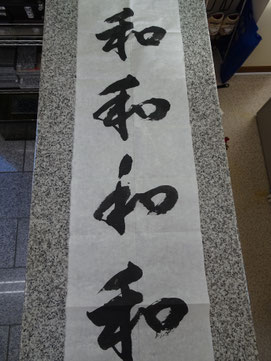 和
和
和
和